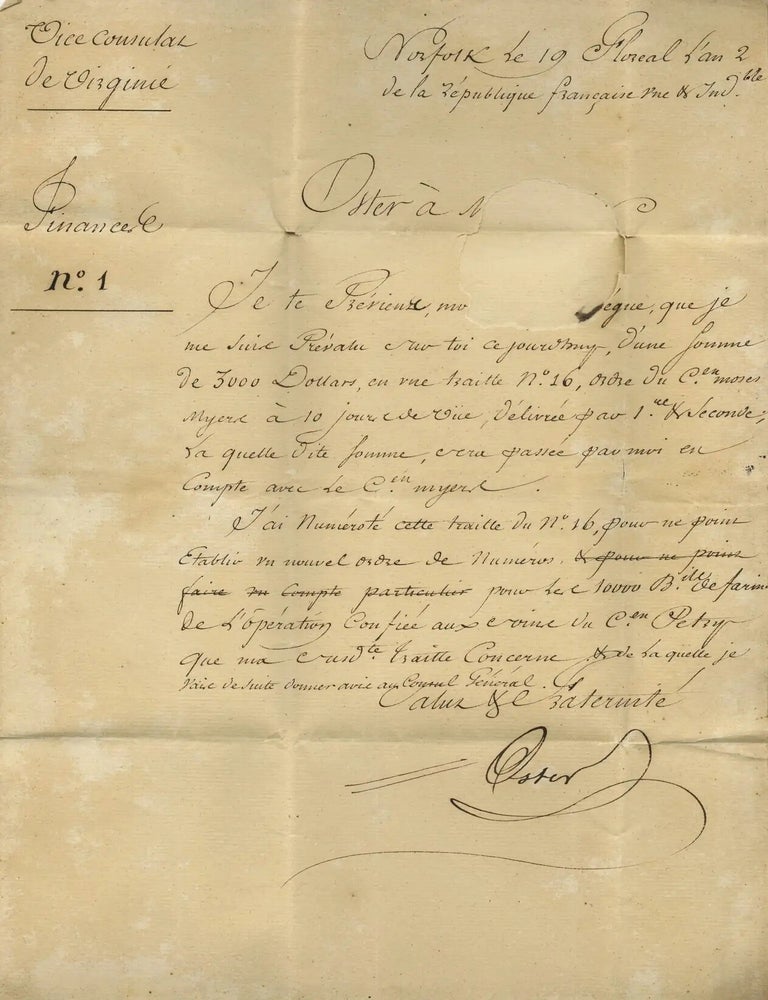 Vice consulat
de Virginie
Norfolk le 19 floreal l'an 2
de la République française une & Ind.ble
Finances
N.º 1
Oster à
Je te Préviens, mo ègue, que je
me suis Prévalu sur toi ce jourd'huy, d'une somme
de 3000 Dollars, en une traitte N.º 16, ordre du C.en moses
Myers à 10 jours de vüe, Délivrée par 1.re & seconde,
La quelle dite somme, sera passée par moi en
Compte avec le C.en myers.
J'ai Numéroté cette traitte du N.º 16, pour ne point
Etablir un nouvel ordre de Numéros. & pour ne point
faire un compte particulier pour les 10000 B.ils de farine
de L'opération Confiée aux soins du C.en Petry
que ma susd.te traitte Concerne & de la quelle je
vais de suite donner avis au Consul Général.
Salut & fraternité
Oster